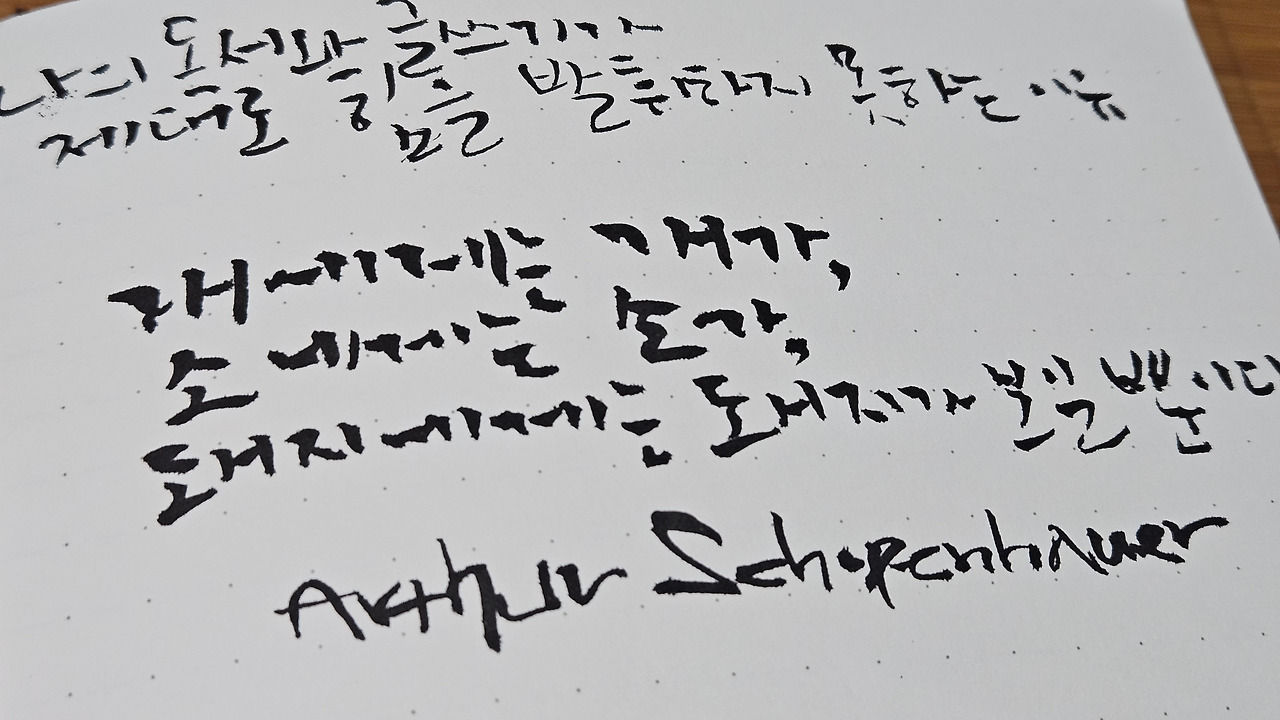 나의 도서와 글쓰기가
제대로 힘을 발휘하지 못하는 이유
개에게는 개가,
소에게는 소가,
돼지에게는 돼지가 보일 뿐이다
Arthur Schopenhauer